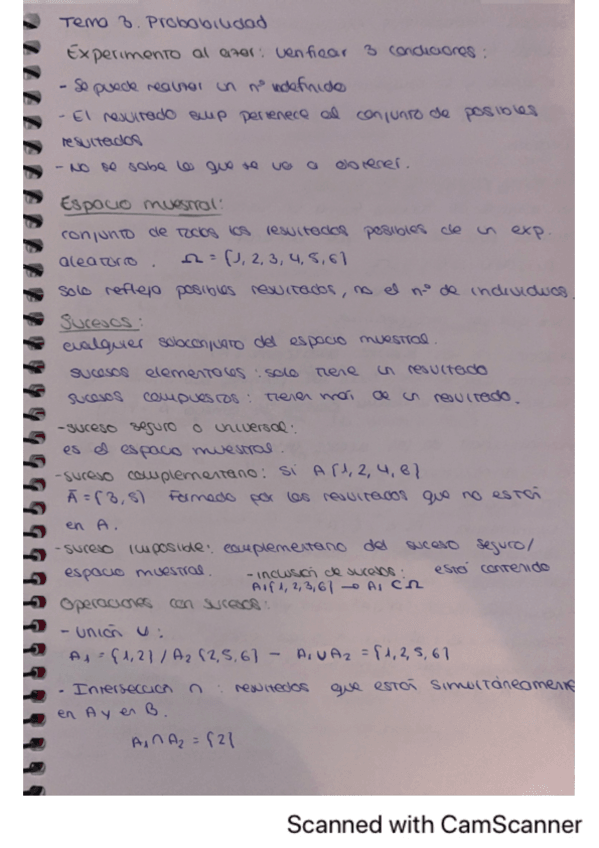 Tema 3. Probabilidad
Experimento al azar: verificar 3 condiciones:
- Se puede realizar un nº indefinido
- El resultado siemp pertenece al conjunto de posibles
resultados
- No se sabe lo que se va a obtener.
Espacio muestral:
conjunto de todos los resultados posibles de un exp.
aleatorio. Ω = {1, 2, 3, 4, 5, 6}
solo refleja posibles resultados, no el nº de individuos.
Sucesos:
cualquier subconjunto del espacio muestral.
sucesos elementales: solo tiene un resultado
sucesos compuestos: tienen más de un resultado.
- suceso seguro o universal:
es el espacio muestral.
- suceso complementario: si A {1, 2, 4, 6}
Ā = {3, 5} Formado por los resultados que no están
en A.
- suceso imposible: complementario del suceso seguro/
espacio muestral. - inclusión de sucesos: está contenido
A₁{1, 2, 3, 6} → A₁ ⊂ Ω
Operaciones con sucesos:
- Unión ∪:
A₁ = {1, 2} / A₂ {2, 5, 6} - A₁ ∪ A₂ = {1, 2, 5, 6}
- Intersección ∩: resultados que están simultáneamente
en A y en B.
A₁ ∩ A₂ = {2}
Scanned with CamScanner